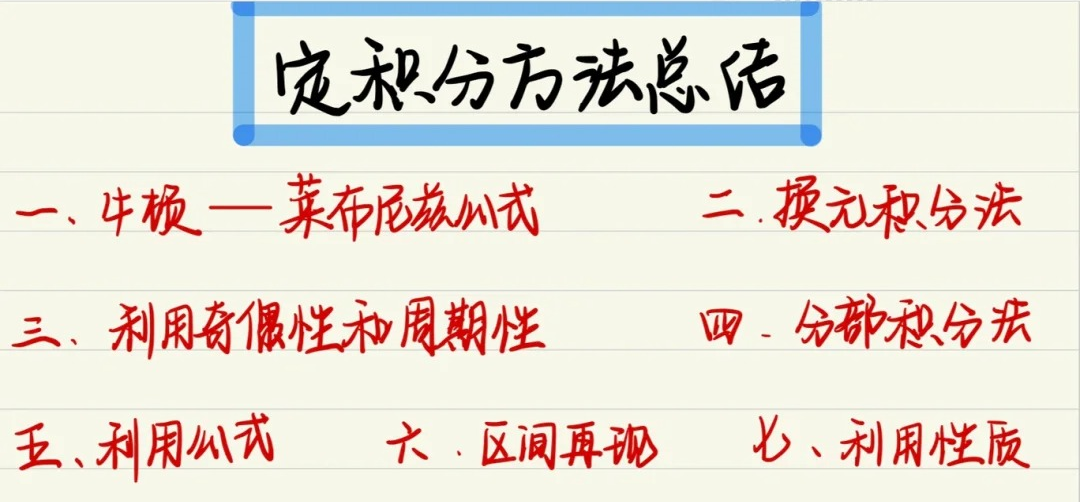 定积分方法总结
一、牛顿——莱布尼兹公式 二.换元积分法
三、利用奇偶性和周期性 四.分部积分法
五、利用公式 六.区间再现 七、利用性质